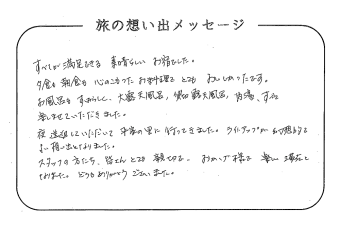 旅の想い出メッセージ
すべてが満足できる 素晴らしい お宿でした。
夕食も 朝食も 心のこもった お料理で とても おいしかったです。
お風呂も すばらしく、大露天風呂、貸切露天風呂、内湯、すべて
楽しませていただきました。
夜 送迎していただいて 千本の里に 行ってきました。ライトアップが
よい 思い出となりました。
スタッフの方たち、皆さん とても 親切で、おかげ様で 楽しい 滞在と
なりました。どうもありがとう ございました。